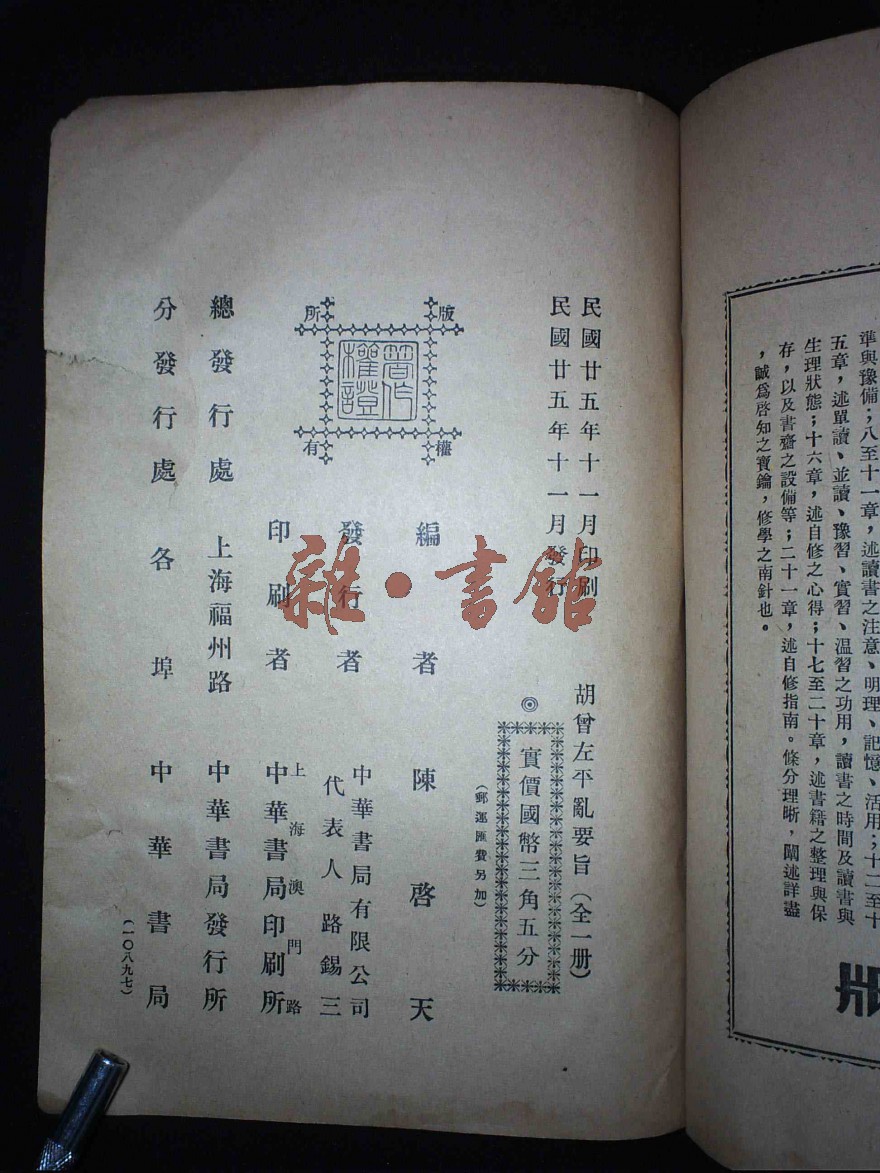 準與豫備；八至十一章，述讀書之注意、明理、記憶、活用；十二至十
五章，述單讀、並讀、豫習、實習、温習之功用，讀書之時間及讀書與
生理狀態；十六章，述自修之心得；十七至二十章，述書籍之整理與保
存，以及書齋之設備等；二十一章，述自修指南。條分理晰，闡述詳盡
，誠爲啓知之寶鑰，修學之南針也。
民國廿五年十一月印刷
民國廿五年十一月發行
胡曾左平亂要旨（全一册）
◎實價國幣三角五分
（郵運匯費另加）
版權所有
著作權證
編者 陳啓天
發行者 中華書局有限公司
代表人路錫三
印刷者 上海澳門路
中華書局印刷所
總發行處 上海福州路 中華書局發行所
分發行處 各埠 中華書局
（一〇八九七）
雜·書館